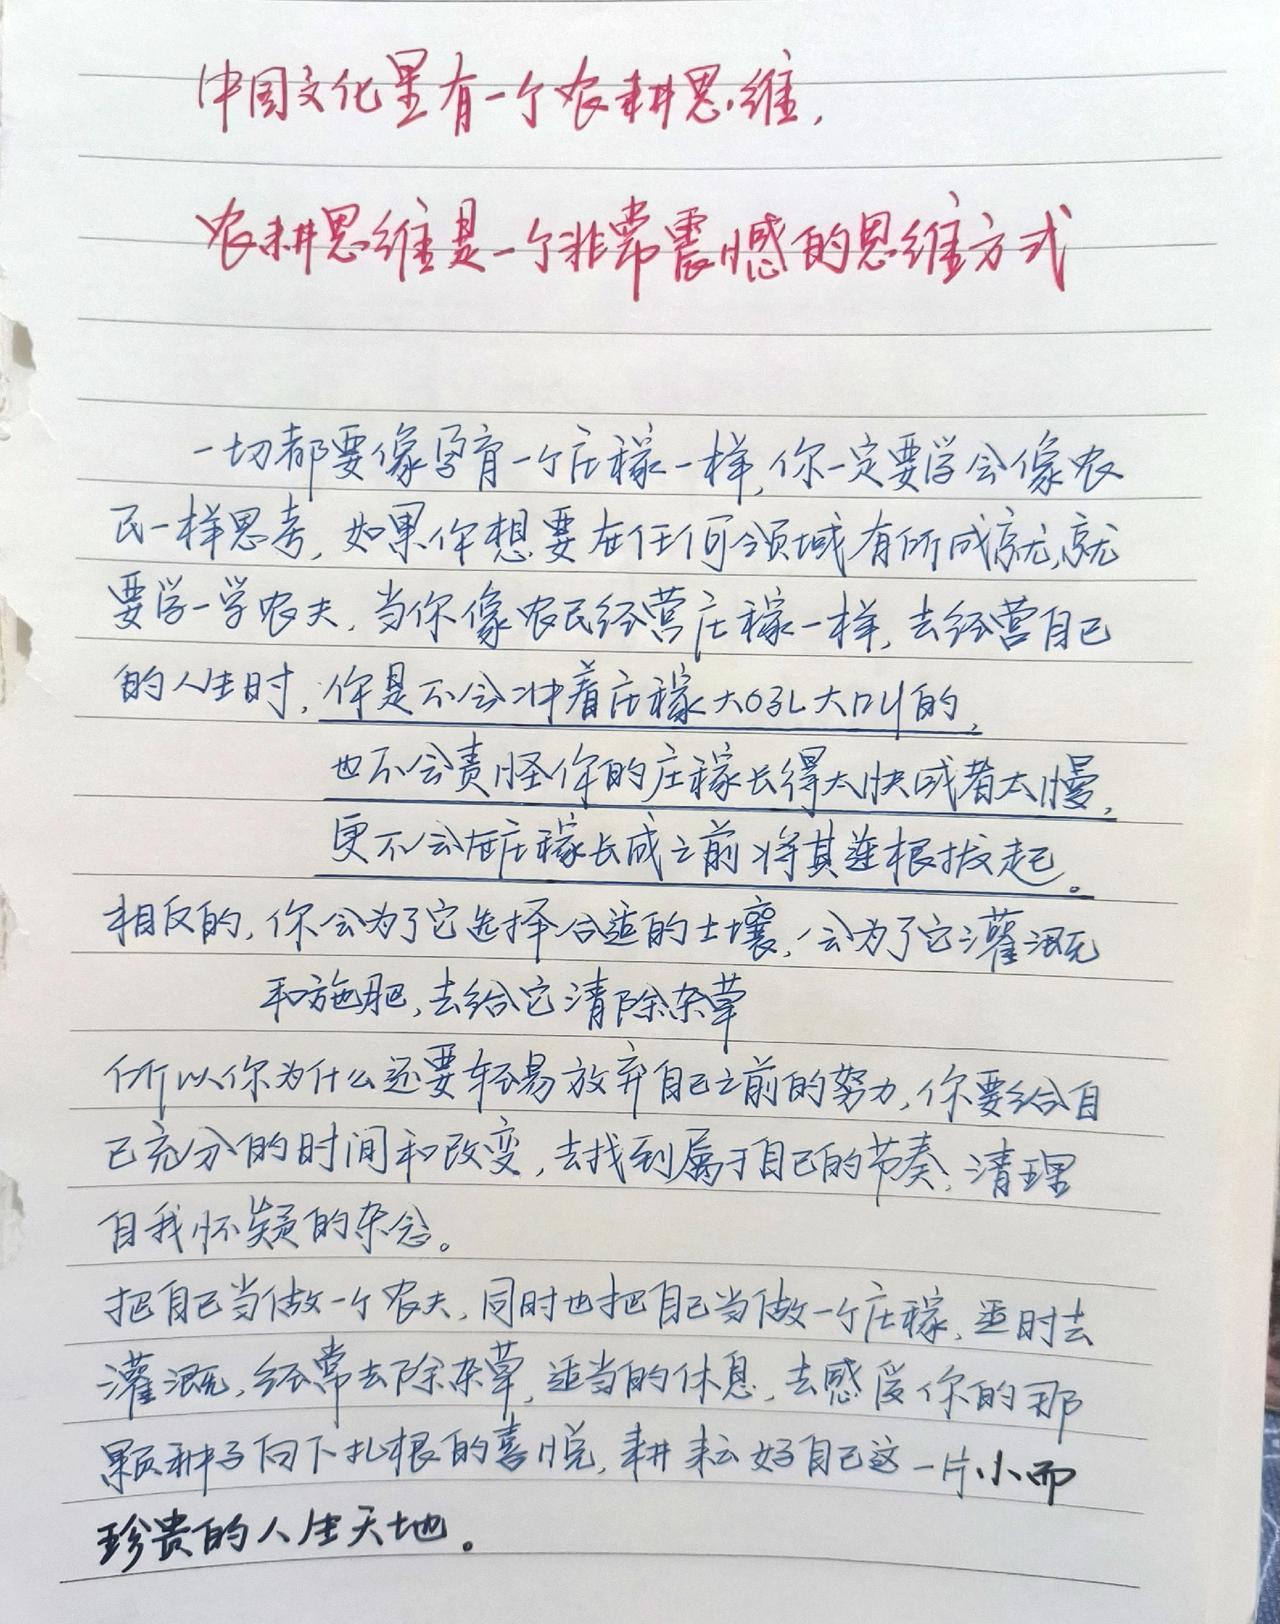 中国文化里有一个农耕思维,
农耕思维是一个非常震憾的思维方式
一切都要像孕育一个庄稼一样,你一定要学会像农
民一样思考,如果你想要在任何领域有所成就,就
要学一学农夫,当你像农民经营庄稼一样,去经营自己
的人生时,你是不会冲着庄稼大吼大叫的,
也不会责怪你的庄稼长得太快或者太慢,
更不会在庄稼长成之前将其连根拔起。
相反的,你会为了它选择合适的土壤,会为了它灌溉
和施肥,去给它清除杂草
所以你为什么还要轻易放弃自己之前的努力,你要给自
己充分的时间和改变,去找到属于自己的节奏,清理
自我怀疑的杂念。
把自己当做一个农夫,同时也把自己当做一个庄稼,适时去
灌溉,经常去除杂草,适当的休息,去感受你的那
颗种子向下扎根的喜悦,耕耘好自己这一片小而
珍贵的人生天地。